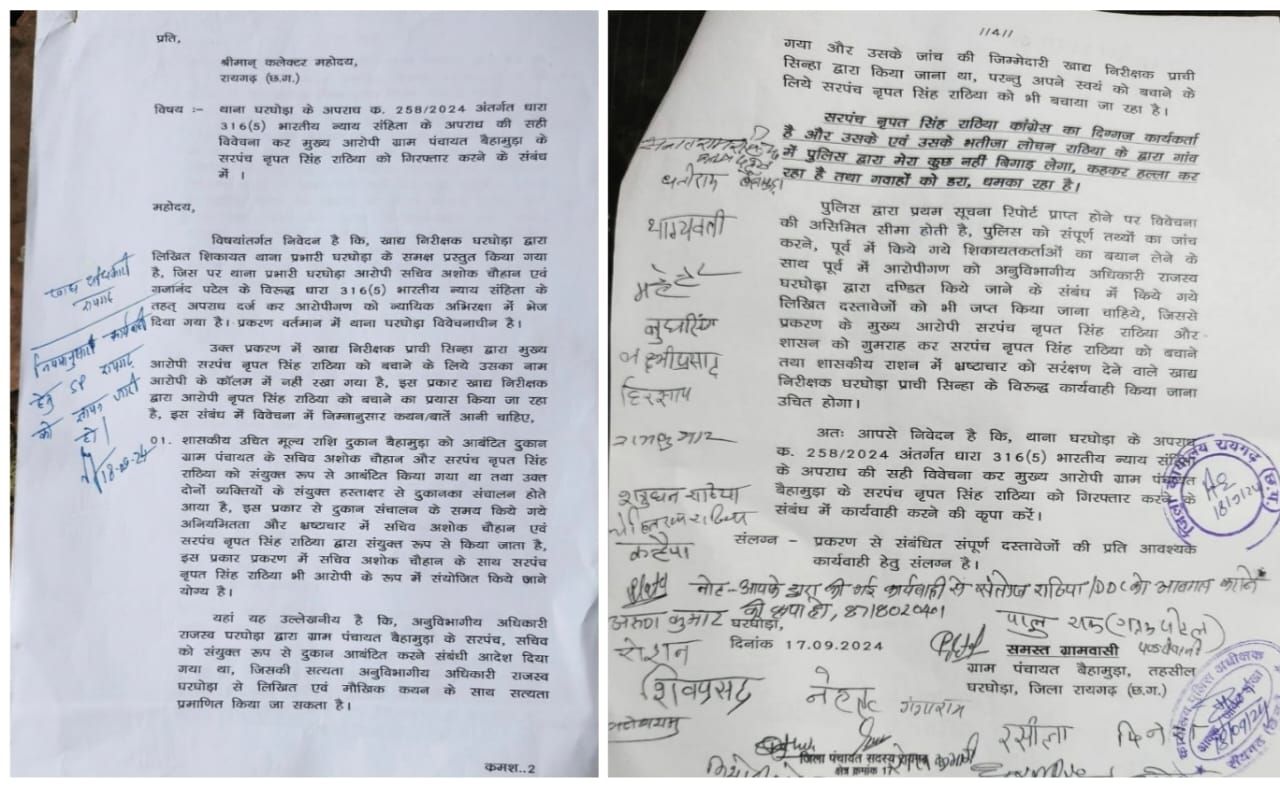 प्रति,
श्रीमान् कलेक्टर महोदय,
रायगढ़ (छ.ग.)
विषय :– थाना घरघोड़ा के अपराध क. 258/2024 अंतर्गत धारा
316(5) भारतीय न्याय संहिता के अपराध की सही
विवेचना कर मुख्य आरोपी ग्राम पंचायत बैहामुड़ा के
सरपंच नृपत सिंह राठिया को गिरफ्तार करने के संबंध
में ।
महोदय,
विषयांतर्गत निवेदन है कि, खाद्य निरीक्षक घरघोड़ा द्वारा
लिखित शिकायत थाना प्रभारी घरघोड़ा के समक्ष प्रस्तुत किया गया
है, जिस पर थाना प्रभारी घरघोड़ा आरोपी सचिव अशोक चौहान एवं
गजानंद पटेल के विरूद्ध धारा 316(5) भारतीय न्याय संहिता के
तहत् अपराध दर्ज कर आरोपीगण को न्यायिक अभिरक्षा में भेज
दिया गया है। प्रकरण वर्तमान में थाना घरघोड़ा विवेचनाधीन है।
उक्त प्रकरण में खाद्य निरीक्षक प्राची सिन्हा द्वारा मुख्य
आरोपी सरपंच नृपत सिंह राठिया को बचाने के लिये उसका नाम
आरोपी के कॉलम में नहीं रखा गया है, इस प्रकार खाद्य निरीक्षक
द्वारा आरोपी नृपत सिंह राठिया को बचाने का प्रयास किया जा रहा
है, इस संबंध में विवेचना में निम्नानुसार कथन/बातें आनी चाहिए,
01. शासकीय उचित मूल्य राशि दुकान बैहामुड़ा को आबंटित दुकान
ग्राम पंचायत के सचिव अशोक चौहान और सरपंच नृपत सिंह
राठिया को संयुक्त रूप से आबंटित किया गया था तथा उक्त
दोनों व्यक्तियों के संयुक्त हस्ताक्षर से दुकानका संचालन होते
आया है, इस प्रकार से दुकान संचालन के समय किये गये
अनियमितता और भ्रष्टाचार में सचिव अशोक चौहान एवं
सरपंच नृपत सिंह राठिया द्वारा संयुक्त रूप से किया जाता है,
इस प्रकार प्रकरण में सचिव अशोक चौहान के साथ सरपंच
नृपत सिंह राठिया भी आरोपी के रूप में संयोजित किये जाने
योग्य है।
यहां यह उल्लेखनीय है कि, अनुविभागीय अधिकारी
राजस्व घरघोड़ा द्वारा ग्राम पंचायत बैहामुड़ा के सरपंच, सचिव
को संयुक्त रूप से दुकान आबंटित करने संबंधी आदेश दिया
गया था, जिसकी सत्यता अनुविभागीय अधिकारी राजस्व
घरघोड़ा से लिखित एवं मौखिक कथन के साथ सत्यता
प्रमाणित किया जा सकता है।
क्रमश..2
खाद्य अधिकारी
रायगढ़
नियमानुसार कार्यवाही
हेतु SP रायगढ़
को ज्ञापन जारी
हो।
18-09-24
//4//
गया और उसके जांच की जिम्मेदारी खाद्य निरीक्षक प्राची
सिन्हा द्वारा किया जाना था, परन्तु अपने स्वयं को बचाने के
लिये सरपंच नृपत सिंह राठिया को भी बचाया जा रहा है।
सरपंच नृपत सिंह राठिया कांग्रेस का दिग्गज कार्यकर्ता
है और उसके एवं उसके भतीजा लोचन राठिया के द्वारा गांव
में पुलिस द्वारा मेरा कुछ नहीं बिगाड़ लेगा, कहकर हल्ला कर
रहा है तथा गवाहों को डरा, धमका रहा है।
पुलिस द्वारा प्रथम सूचना रिपोर्ट प्राप्त होने पर विवेचना
की असिमित सीमा होती है, पुलिस को संपूर्ण तथ्यों का जांच
करने, पूर्व में किये गये शिकायतकर्ताओं का बयान लेने के
साथ पूर्व में आरोपीगण को अनुविभागीय अधिकारी राजस्व
घरघोड़ा द्वारा दण्डित किये जाने के संबंध में किये गये
लिखित दस्तावेजों को भी जप्त किया जाना चाहिये, जिससे
प्रकरण के मुख्य आरोपी सरपंच नृपत सिंह राठिया और
शासन को गुमराह कर सरपंच नृपत सिंह राठिया को बचाने
तथा शासकीय राशन में भ्रष्टाचार को सरंक्षण देने वाले खाद्य
निरीक्षक घरघोड़ा प्राची सिन्हा के विरूद्ध कार्यवाही किया जाना
उचित होगा।
अतः आपसे निवेदन है कि, थाना घरघोड़ा के अपराध
क. 258/2024 अंतर्गत धारा 316(5) भारतीय न्याय संहिता
के अपराध की सही विवेचना कर मुख्य आरोपी ग्राम पंचायत
बैहामुड़ा के सरपंच नृपत सिंह राठिया को गिरफ्तार करने के
संबंध में कार्यवाही करने की कृपा करें।
संलग्न – प्रकरण से संबंधित संपूर्ण दस्तावेजों की प्रति आवश्यके
कार्यवाही हेतु संलग्न है।
नोट-आपके द्वारा की गई कार्यवाही से संतोष राठिया/DDC को अवगत कराने
की कृपा हो, 8718020401
घरघोड़ा,
दिनांक 17.09.2024
समस्त ग्रामवासी
ग्राम पंचायत बैहामुड़ा, तहसील
घरघोड़ा, जिला रायगढ़ (छ.ग.)
धनीराम
भाग्यवती
बुधसिंग
शत्रुघन राठिया
अरुण कुमार
रोशन
शिवप्रसाद
गंगाराम
रसीला
जिला पंचायत सदस्य रायगढ़
क्षेत्र क्रमांक 17
18/9/24
18/09/24